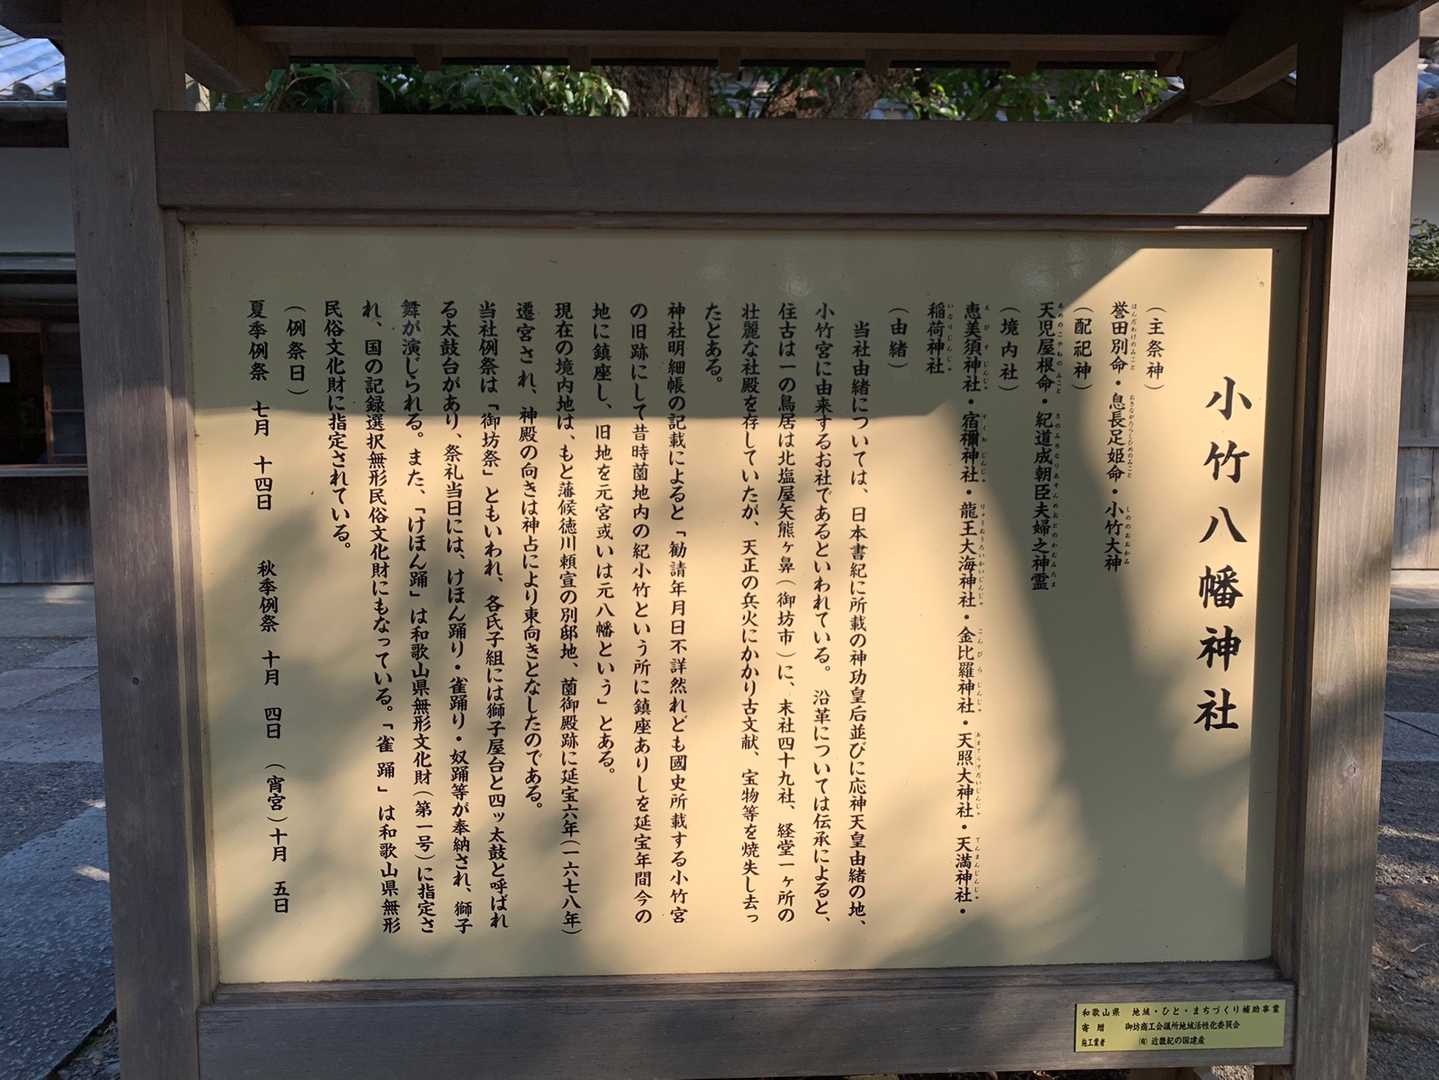 小竹八幡神社
（主祭神）
誉田別命・息長足姫命・小竹大神
（配祀神）
天児屋根命・紀道成朝臣夫婦之神霊
（境内社）
恵美須神社・宿禰神社・龍王大海神社・金比羅神社・天照大神社・天満神社・
稲荷神社
（由緒）
当社由緒については、日本書紀に所載の神功皇后並びに応神天皇由緒の地、
小竹宮に由来するお社であるといわれている。　沿革については伝承によると、
往古は一の鳥居は北塩屋矢熊ヶ鼻（御坊市）に、末社四十九社、経堂一ヶ所の
壮麗な社殿を存していたが、天正の兵火にかかり古文献、宝物等を焼失し去っ
たとある。
神社明細帳の記載によると「勧請年月日不詳然れども國史所載する小竹宮
の旧跡にして昔時薗地内の紀小竹という所に鎮座ありしを延宝年間今の
地に鎮座し、旧地を元宮或いは元八幡という」とある。
現在の境内地は、もと藩候徳川頼宣の別邸地、薗御殿跡に延宝六年（一六七八年）
遷宮され、神殿の向きは神占により東向きとなしたのである。
当社例祭は「御坊祭」ともいわれ、各氏子組には獅子屋台と四ッ太鼓と呼ばれ
る太鼓台があり、祭礼当日には、けほん踊り・雀踊り・奴踊等が奉納され、獅子
舞が演じられる。また、「けほん踊」は和歌山県無形文化財（第一号）に指定さ
れ、国の記録選択無形民俗文化財にもなっている。「雀踊」は和歌山県無形
民俗文化財に指定されている。
（例祭日）
夏季例祭　七月　十四日　　秋季例祭　十月　四日　（宵宮）十月　五日
和歌山県　地域・ひと・まちづくり補助事業
寄贈　御坊商工会議所地域活性化委員会
施工業者　㈲近畿紀の国建産